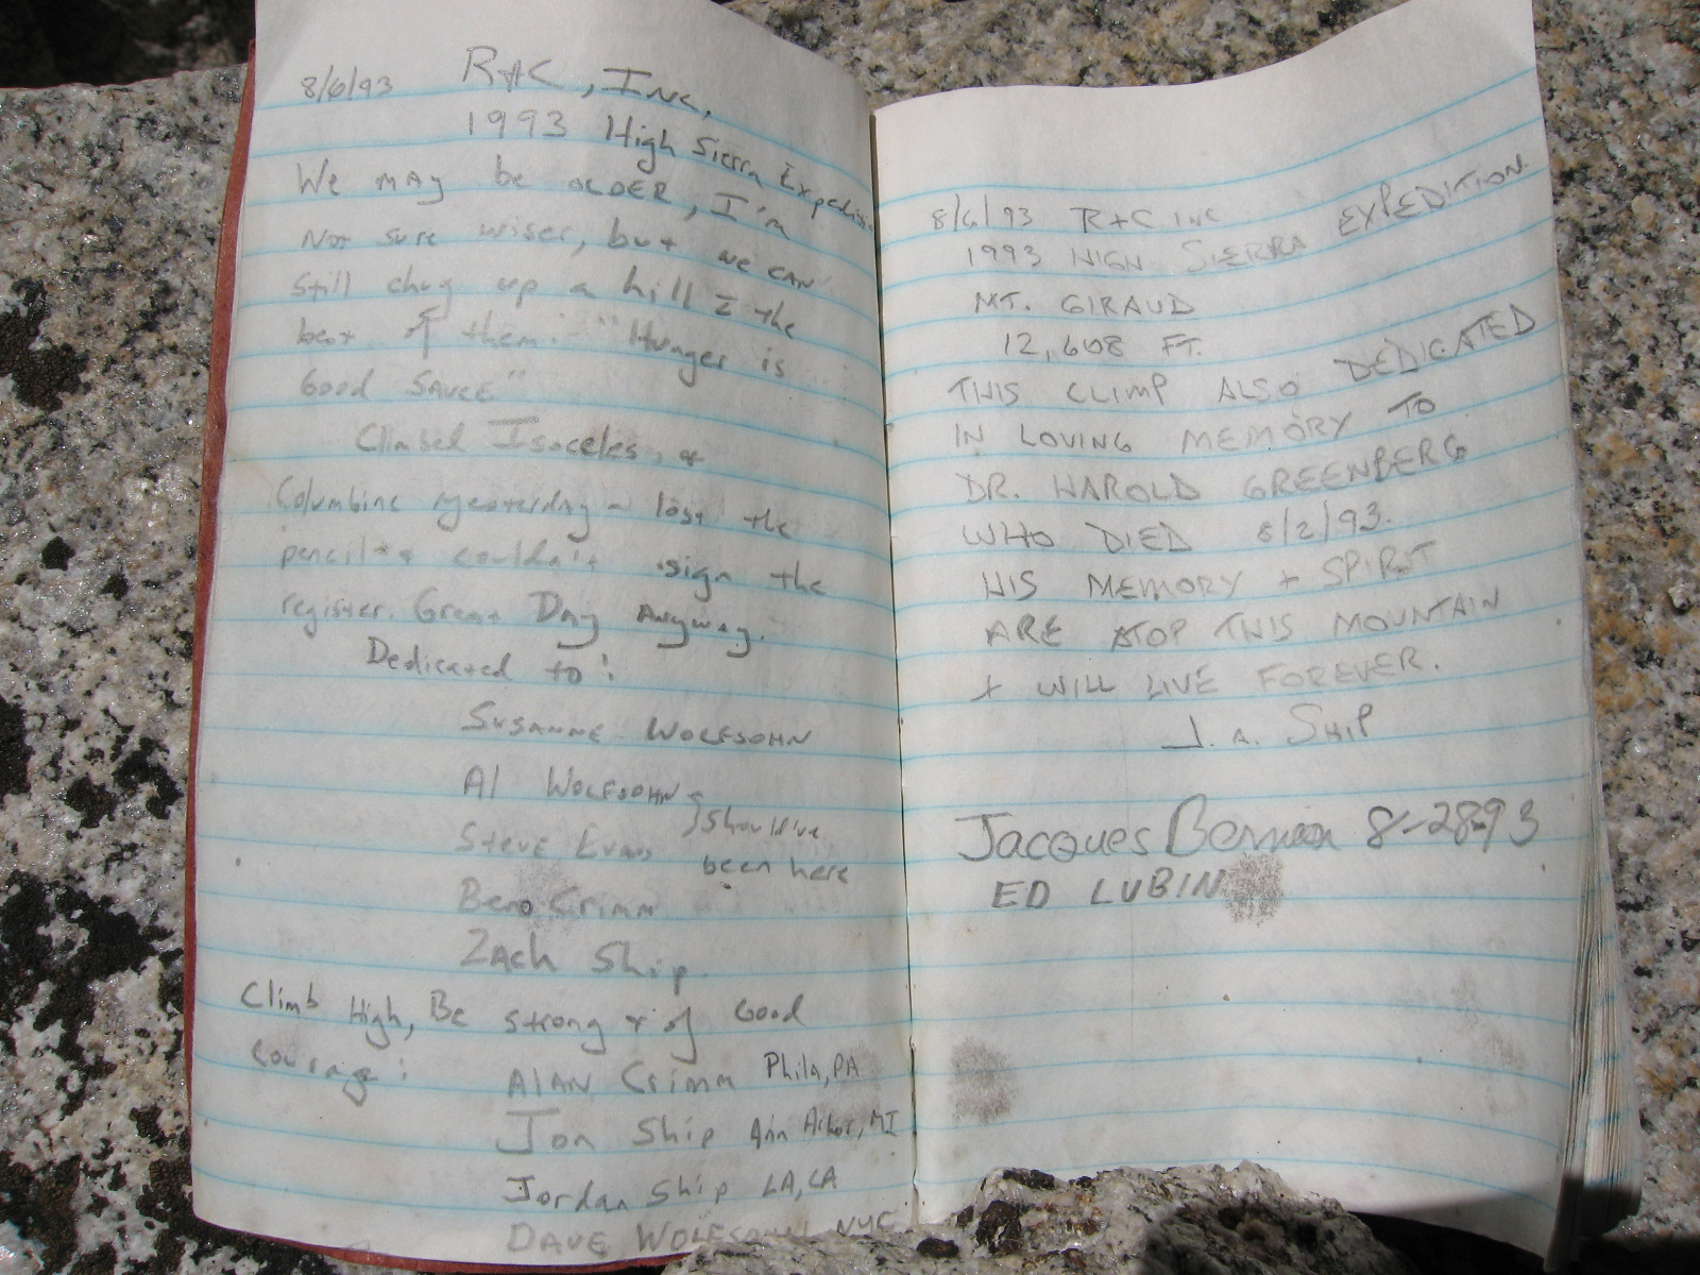 8/6/93 R+C, Inc.
1993 High Sierra Expedition
We may be OLDER, I'm
Not sure wiser, but we CAN
still chug up a hill the
best of them. "Hunger is
Good Sauce"
Climbed Isoceles, &
Columbine yesterday - lost the
pencil & couldn't sign the
register. Great Day Anyway.
Dedicated to:
Susanne Wolfsohn
Al Wolfsohn
Steve Evans } Should've
been here
Beno Crimm
Zach Ship
Climb High, Be strong & of Good
Courage:
Alan Crimm Phila, PA
Jon Ship Ann Arbor, MI
Jordan Ship LA, CA
DAVE WOLFSOHN NYC
8/6/93 R+C. INC
1993 HIGH SIERRA EXPEDITION.
MT. GIRAUD
12,608 FT.
THIS CLIMP ALSO DEDICATED
IN LOVING MEMORY TO
DR. HAROLD GREENBERG
WHO DIED 8/2/93.
HIS MEMORY + SPIRIT
ARE ATOP THIS MOUNTAIN
+ WILL LIVE FOREVER.
J. A. SHIP
Jacques Berman 8-28-93
ED LUBIN